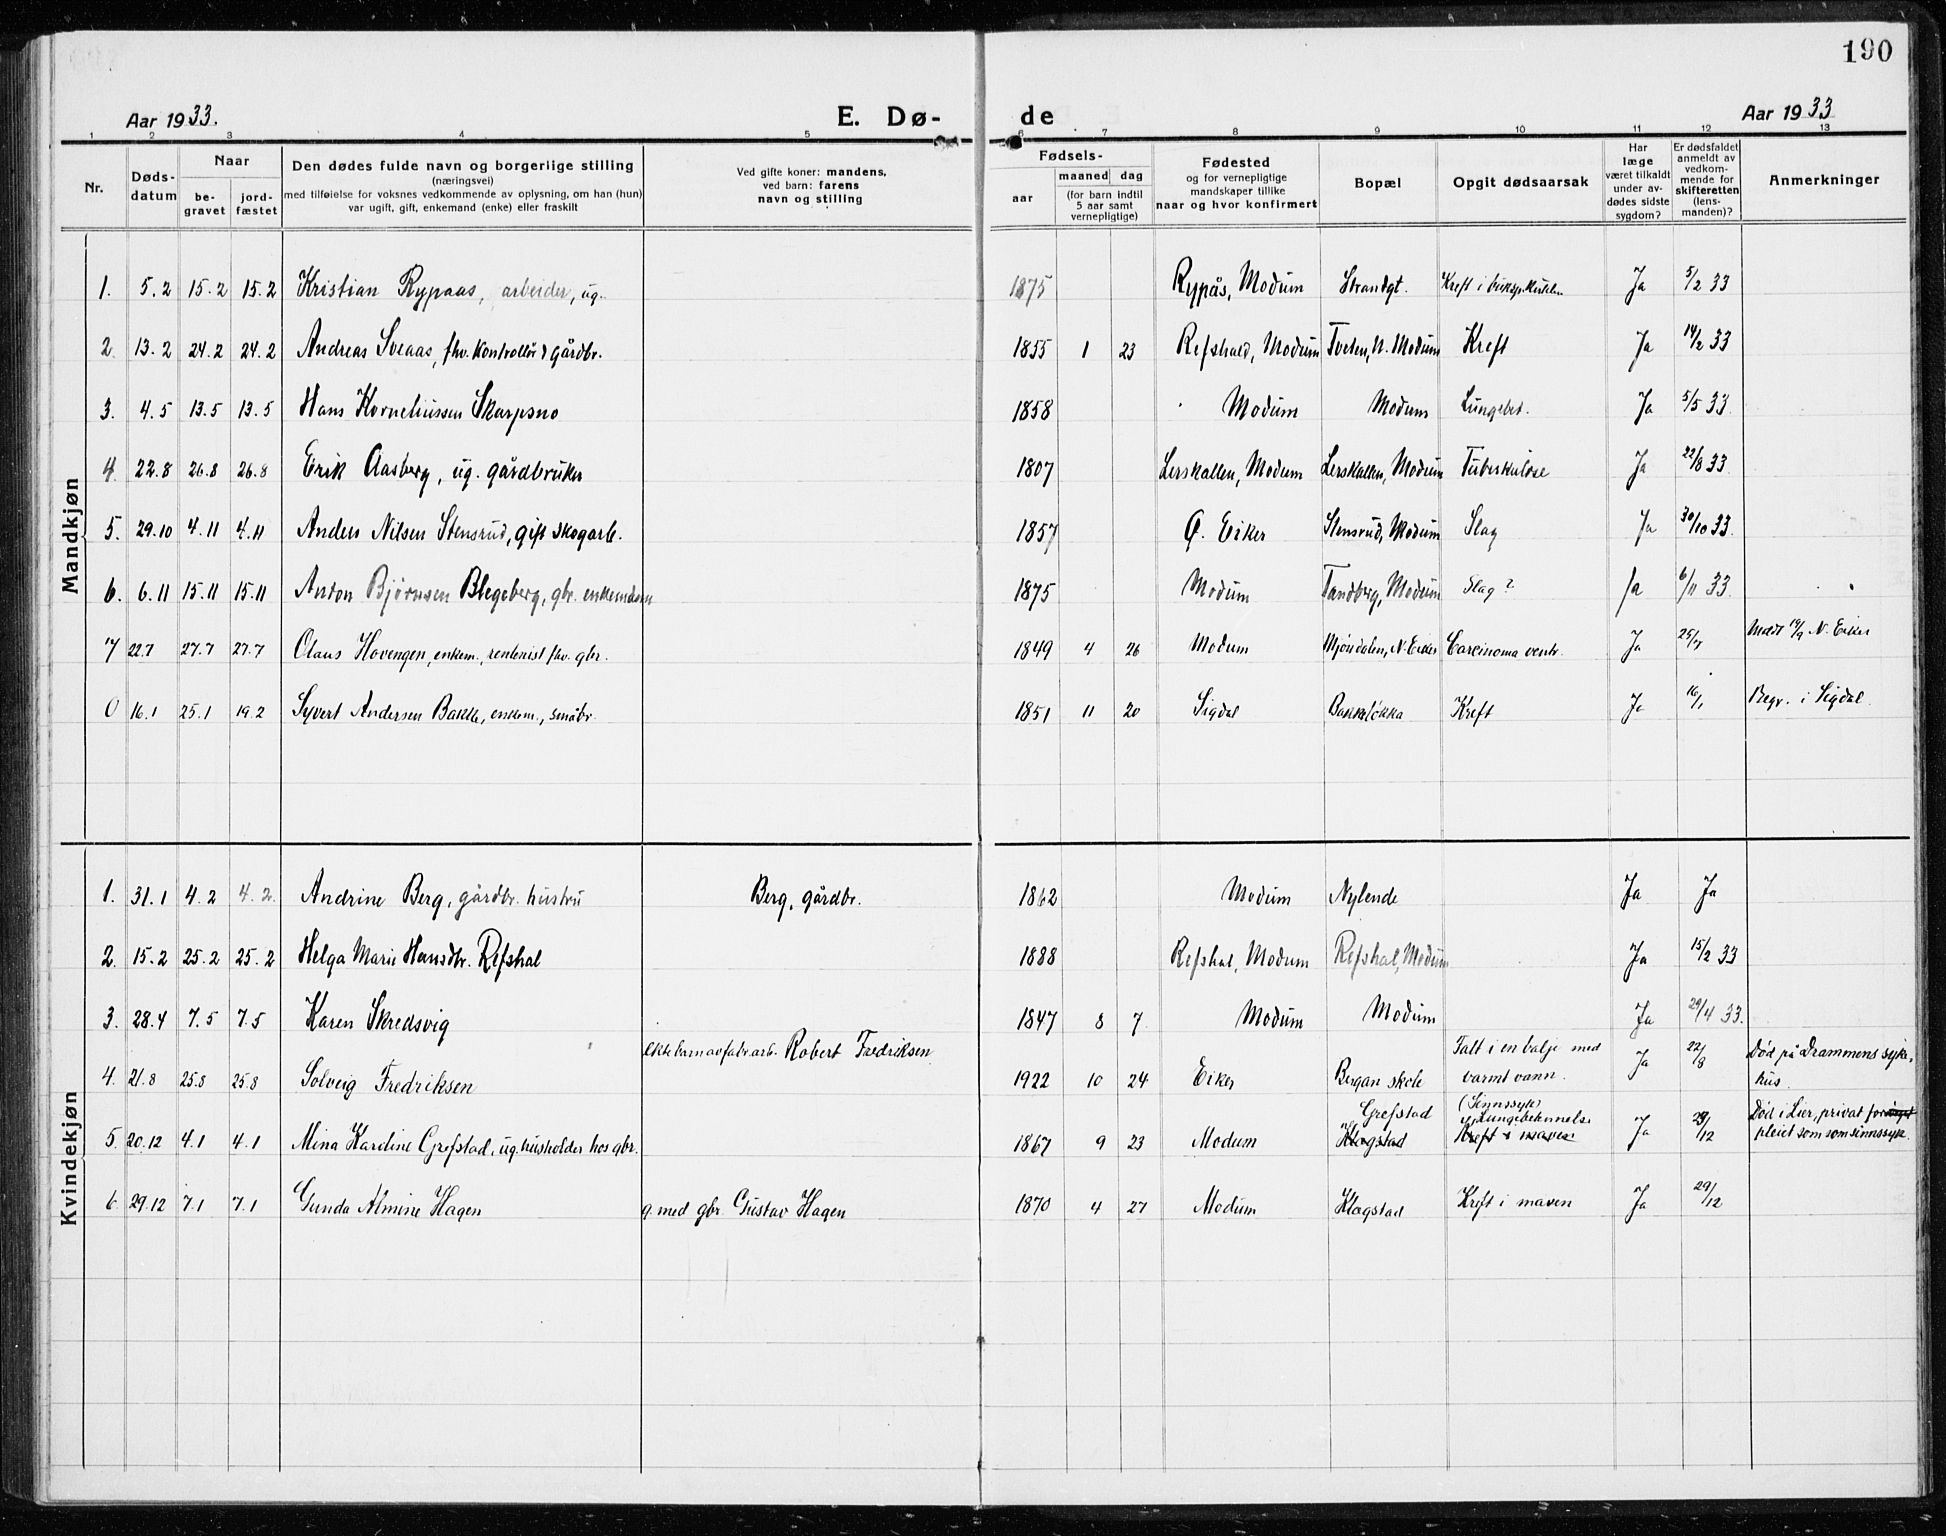 190
Aar 1933.
E. Dø-
de
Aar 1933
1 2 3 4 5 6 7 8 9 10 11 12 13
Nr.
Døds-
datum
Naar
be-
gravet
jord-
fæstet
Den dødes fulde navn og borgerlige stilling
(næringsvei)
med tilføielse for voksnes vedkommende av oplysning, om han (hun)
var ugift, gift, enkemand (enke) eller fraskilt
Ved gifte koner: mandens,
ved barn: farens
navn og stilling
Fødsels-
aar
maaned dag
(for barn indtil
5 aar samt
vernepligtige)
Fødested
og for vernepligtige
mandskaper tillike
naar og hvor konfirmert
Bopæl
Opgit dødsaarsak
Har
læge
været tilkaldt
under av-
dødes sidste
sygdom?
Er dødsfaldet
anmeldt av
vedkom-
mende for
skifteretten
(lens-
manden)?
Anmerkninger
Mandkjøn
1. 5.2 15.2 15.2 Kristian Rypaas, arbeider, ug. 1875 Rypås, Modum Strandgt. Kreft i Ja 5/2 33
2. 13.2 24.2 24.2 Andreas Sveaas, fhv. kontrollør & gårdbr. 1855 1 23 Refshald, Modum Tveten, N. Modum Kreft Ja 14/2 33
3. 4.5 13.5 13.5 Hans Korneliussen Skarpsno 1858 Modum Modum Lungebet. Ja 5/5 33
4. 22.8 26.8 26.8 Erik Aasberg, ug. gårdbruker 1807 Lerskallen, Modum Lerskallen, Modum Tuberkulose Ja 22/8 33
5. 29.10 4.11 4.11 Anders Nilsen Stensrud, gift skogarb. 1857 Ø. Eiker Stensrud, Modum Slag Ja 30/10 33
6. 6.11 15.11 15.11 Anton Bjørnsen Blegeberg, gbr. enkemann 1875 Modum Tandberg, Modum Slag? Ja 6/11 33
7 22.7 27.7 27.7 Olaus Hovengen, enkem., rentenist fhv. gbr. 1849 4 26 Modum Mjøndalen, N. Eiker Carcinoma ventr. Ja 25/7 Medt 14/9 N. Eiker
0 16.1 25.1 19.2 Syvert Andersen Bakke, enkem., småbr. 1851 11 20 Sigdal Bakkeløkka Kreft Ja 16/1 Begr. i Sigdal
Kvindekjøn
1. 31.1 4.2 4.2 Andrine Berg, gårdbr. hustru Berg, gårdbr. 1862 Modum Nylende Ja Ja
2. 15.2 25.2 25.2 Helga Marie Hansdtr. Refshal 1888 Refshal, Modum Refshal, Modum Ja 15/2 33
3. 28.4 7.5 7.5 Karen Skredsvig 1847 8 7 Modum Modum Ja 29/4 33.
4. 21.8 25.8 25.8 Solveig Fredriksen ekte barn av fabr.arb. Robert Fredriksen 1922 10 24 Eiker Bergan skole Falt i en balje med
varmt vann. Ja 22/8 Død på Drammens syke-
hus.
5. 20.12 4.1 4.1 Mina Kardine Grefstad, ug. husholder hos gbr. 1867 9 23 Modum Grefstad
Klogstad (Sinnssyk)
Lungebetennelse
Kreft i maven Ja 29/12 Død i Lier, privat
pleiet som som sinnssyk.
6 29.12 7.1 7.1 Gunda Almine Hagen g. med gbr. Gustav Hagen 1870 4 27 Modum Klogstad Kreft i maven Ja 29/12